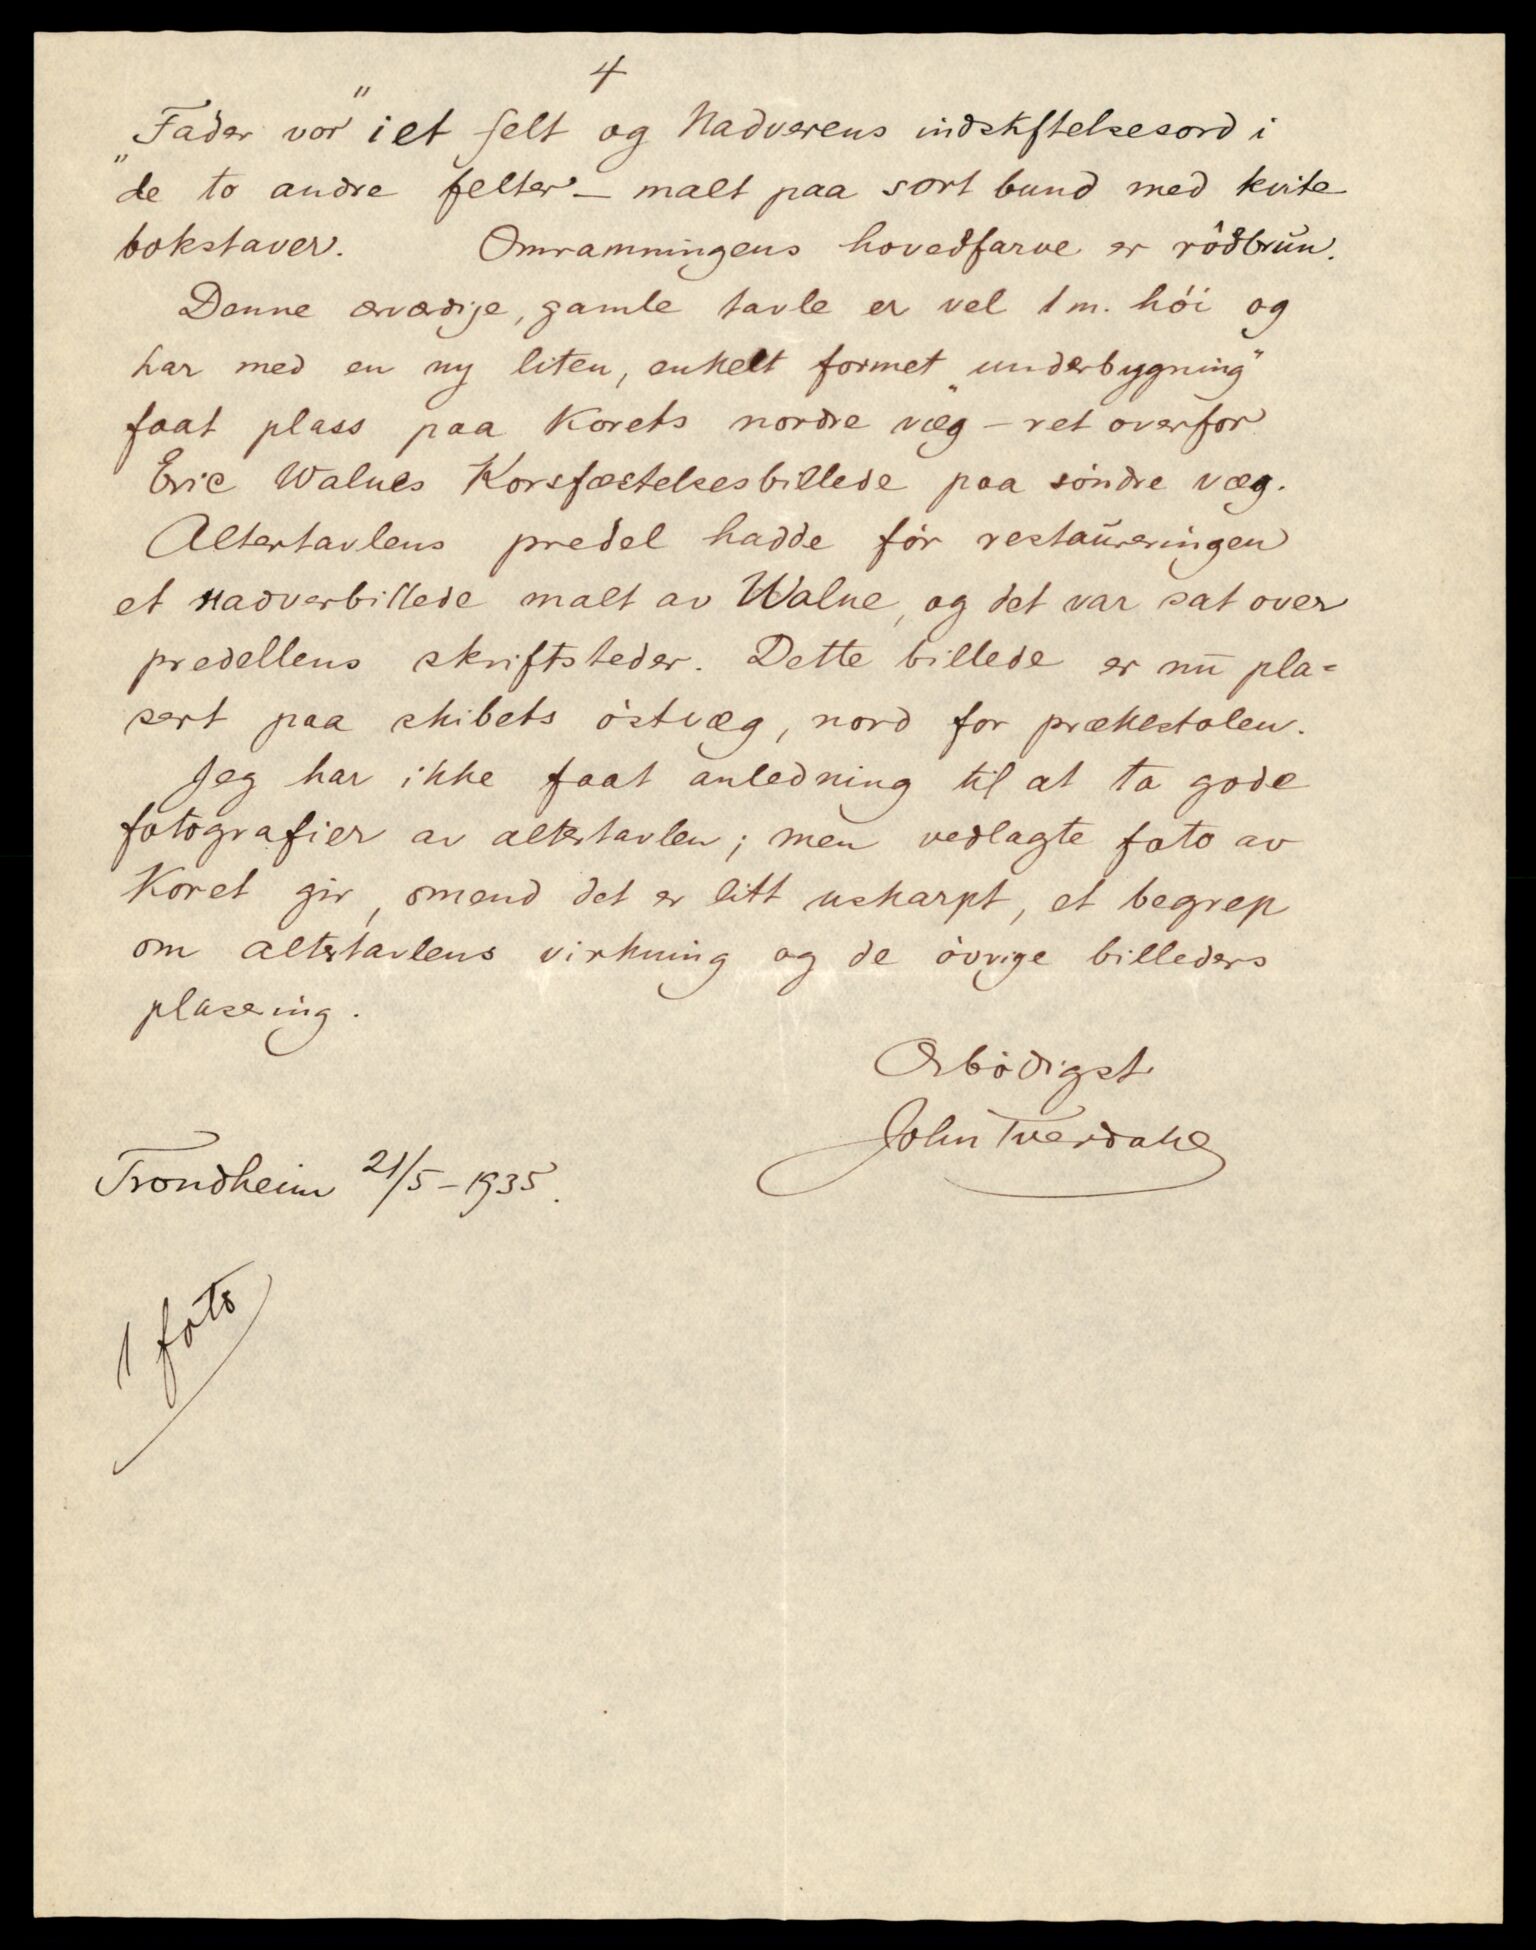 4
„Fader vor” i et felt og Nadverens indskftelsesord i
de to andre felter – malt paa sort bund med kvite
bokstaver. Omramningens hovedfarve er rödbrun.
Denne ærværdige, gamle tavle er vel 1 m. höi og
har med en ny liten, enkelt formet „underbygning”
faat plass paa Korets nordre væg – ret overfor
Eric Walnes Korsfæstelsesbillede paa söndre væg.
Altertavlens predel hadde för restaureringen
et nadverbillede malt av Walne, og det var sat over
predellens skriftsteder. Dette billede er nu pla-
sert paa skibets östvæg, nord for prækestolen.
Jeg har ikke faat anledning til at ta gode
fotografier av altertavlen; men vedlagte foto av
Koret gir, omend det er litt uskarpt, et begrep
om altertavlens virkning og de övrige billeders
plasering.
Ærbödigst
John Tverdahl
Trondheim 21/5 – 1935.
1 foto